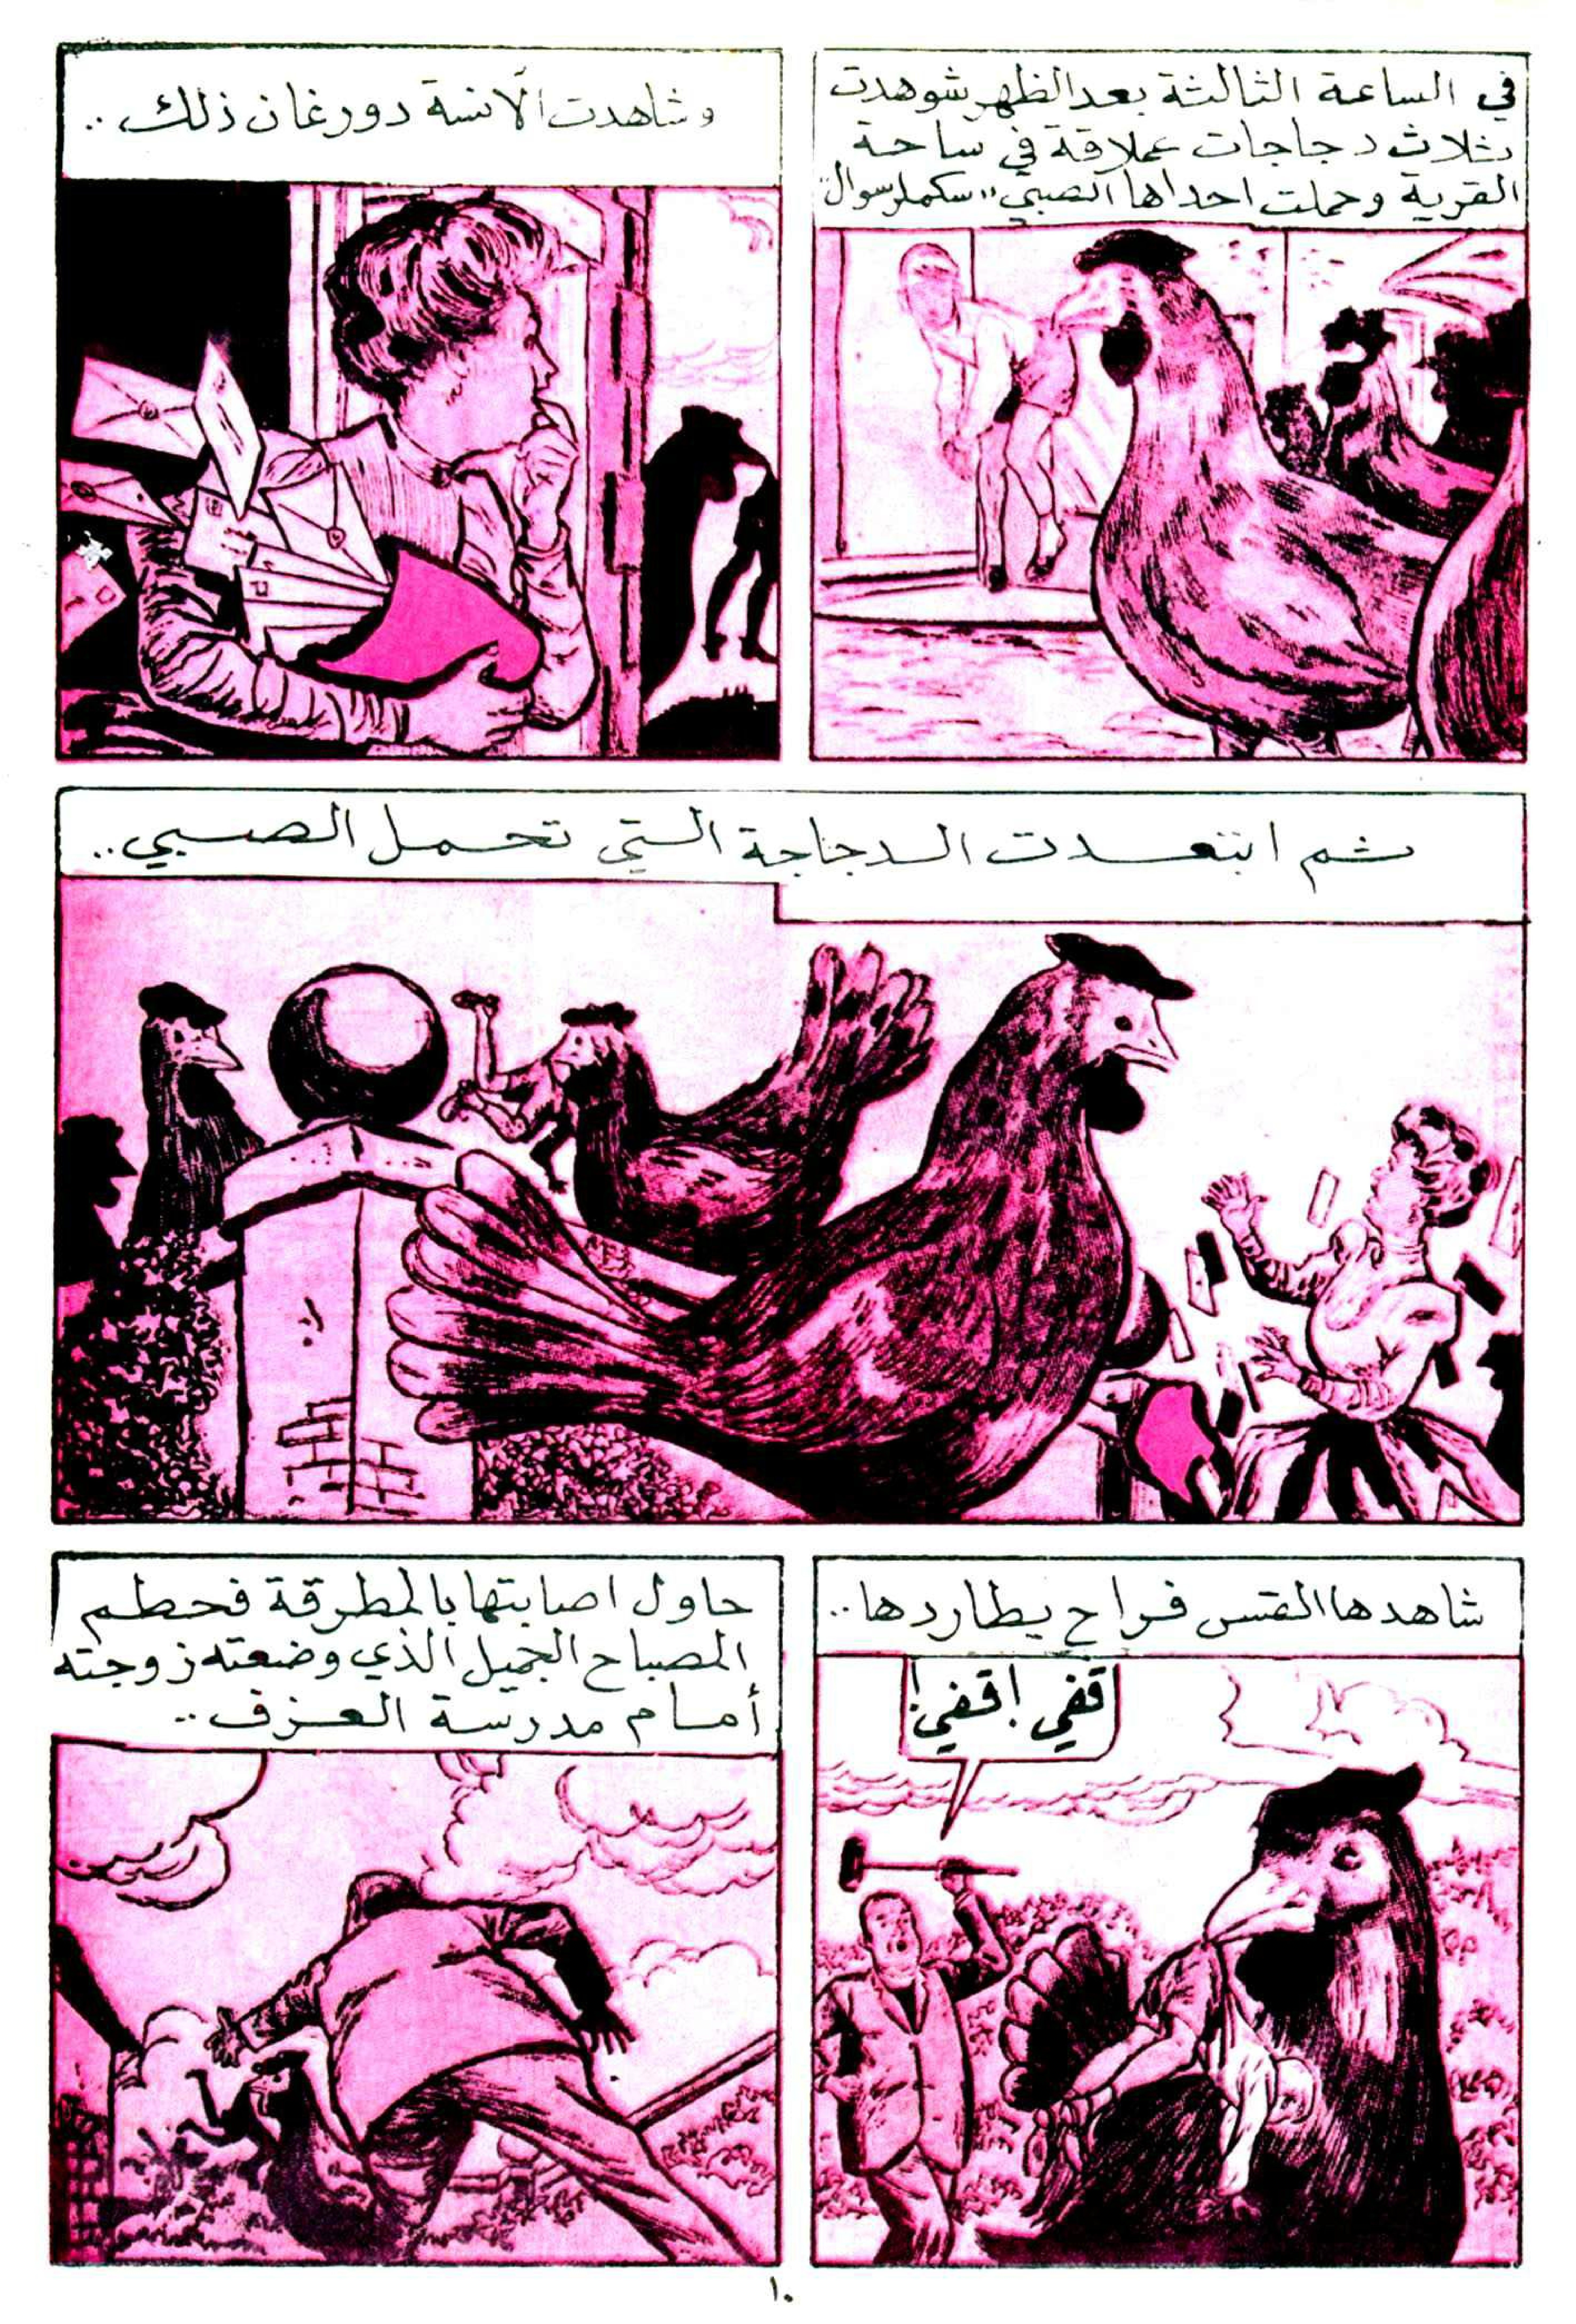 في الساعة الثالثة بعد الظهر شوهدت
ثلاث دجاجات عملاقة في ساحة
القرية وحملت احداها الصبي "سكملرسوال"
وشاهدت الآنسة دورغان ذلك ..
ثم ابتعدت الدجاجة التي تحمل الصبي ..
شاهدها القس فراح يطاردها ..
قفي ! قفي !
حاول اصابتها بالمطرقة فحطم
المصباح الجميل الذي وضعته زوجته
أمام مدرسة العزف ..
١٠